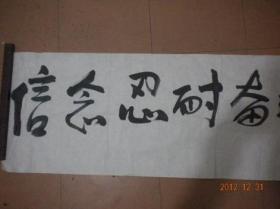 信念忍耐奋
2012.12.31